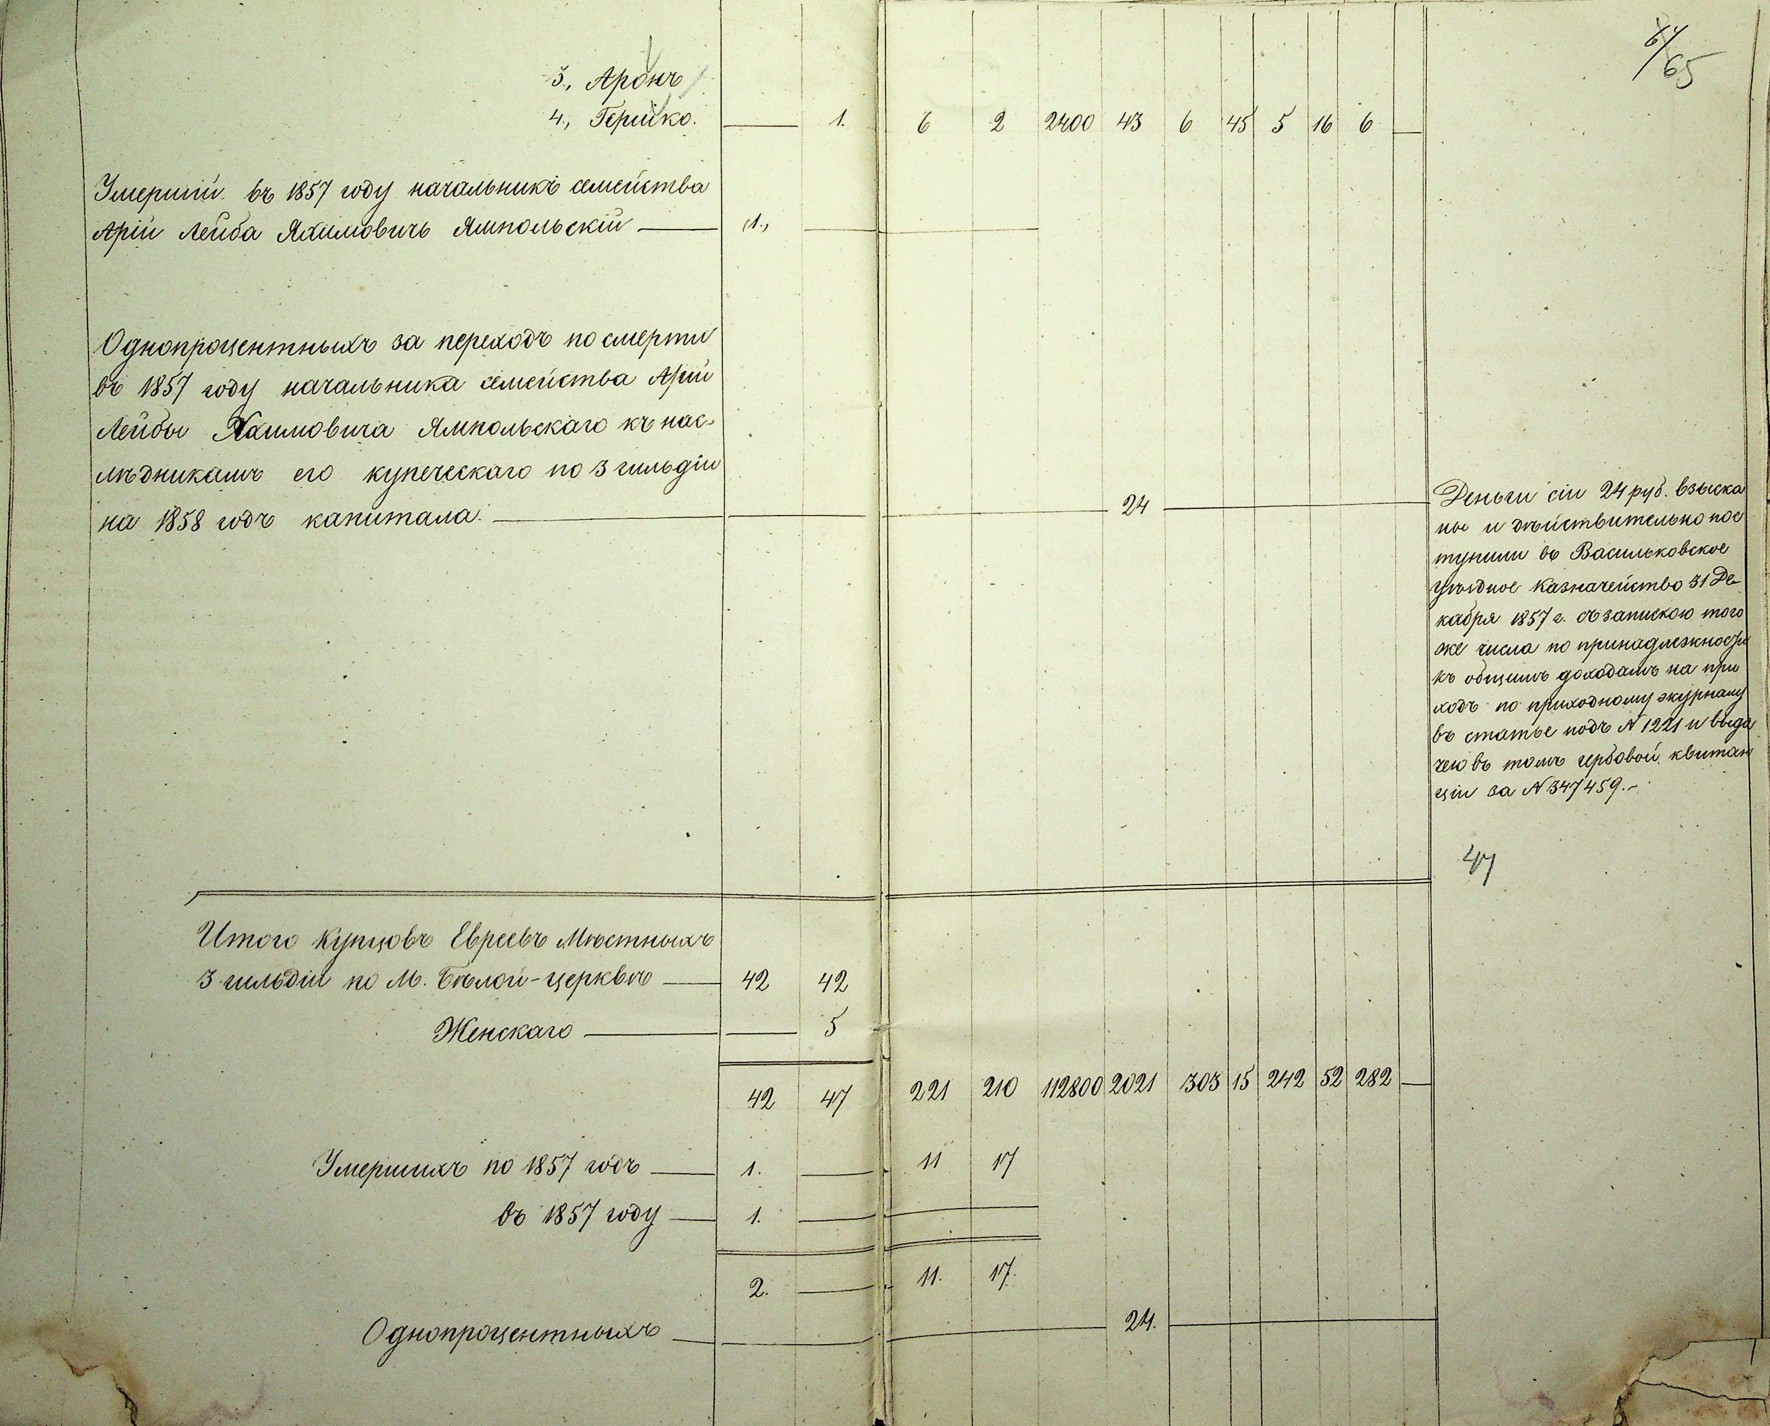 64/65
3., Аронъ
4., Гершко. 1. 6 2 2400 43 6 45 5 16 6
Умершій въ 1857 году начальникъ семейства
Арій Лейба Яхимовичъ Ямпольскій (1.,
Однопроцентныхъ за переходъ по смерти
въ 1857 году начальника семейства Арій
Лейбы Яхимовича Ямпольскаго къ нас-
лѣдникамъ его купеческаго по 3 гильдіи
на 1858 годъ капитала. 24
Деньги сіи 24 руб. взыска
ны и дѣйствительно пос
тупили въ Васильковское
уѣздное Казначейство 31 Де-
кабря 1857 г. съ запискою того
же числа по принадлежности
къ общимъ доходамъ на при
ходъ по приходному журналу
въ статье подъ № 1221 и выда
чею въ томъ гербовой квитан
ціи за № 347459.-
47
Итого Купцовъ Евреевъ Мѣстныхъ
3 гильдіи по М. Бѣлой-церквѣ 42 42
Женскаго 5
42 47 221 210 112800 2021 303 15 242 52 282
Умершихъ по 1857 годъ 1. 11 17
въ 1857 году 1.
2. 11. 17.
Однопроцентныхъ 24.